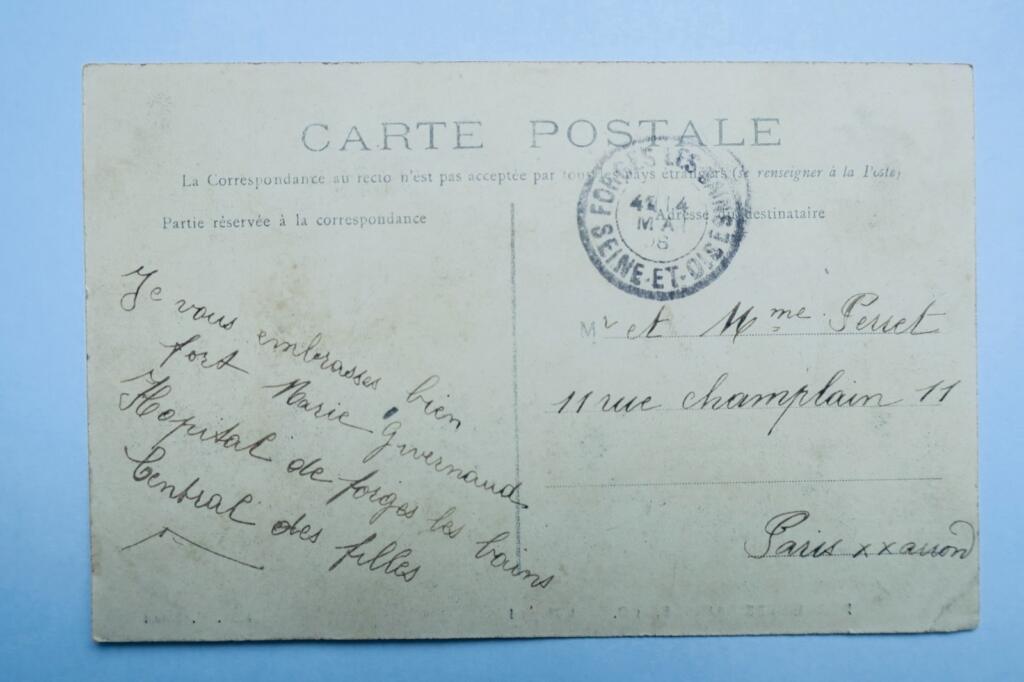 CARTE POSTALE
La Correspondance au recto n'est pas acceptée par tous pays étrangers (se renseigner à la Poste)
Partie réservée à la correspondance
Adresse du destinataire
FORGES LES BAINS
4E 14
MAI
08
SEINE-ET-OISE
Je vous embrasses bien
fort Marie
Hopital de forges les bains
Central des filles
Mr et Mme Perret
11 rue champlain 11
Paris xx